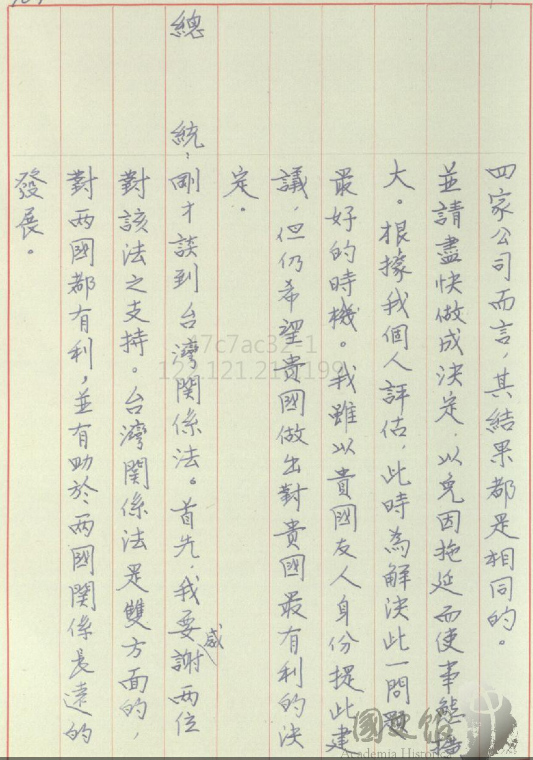 四家公司而言，其結果都是相同的。
並請盡快做成決定，以免因拖延而使事態擴
大。根據我個人評估，此時為解決此一問題
最好的時機。我雖以貴國友人身份提此建
議，但仍希望貴國做出對貴國最有利的決
定。
總統：剛才談到台灣関係法。首先，我要感謝两位
對該法之支持。台灣関係法是雙方面的，
對两國都有利，並有助於两國関係長遠的
發展。
47c7ac32-1
國史館
Academia Historica